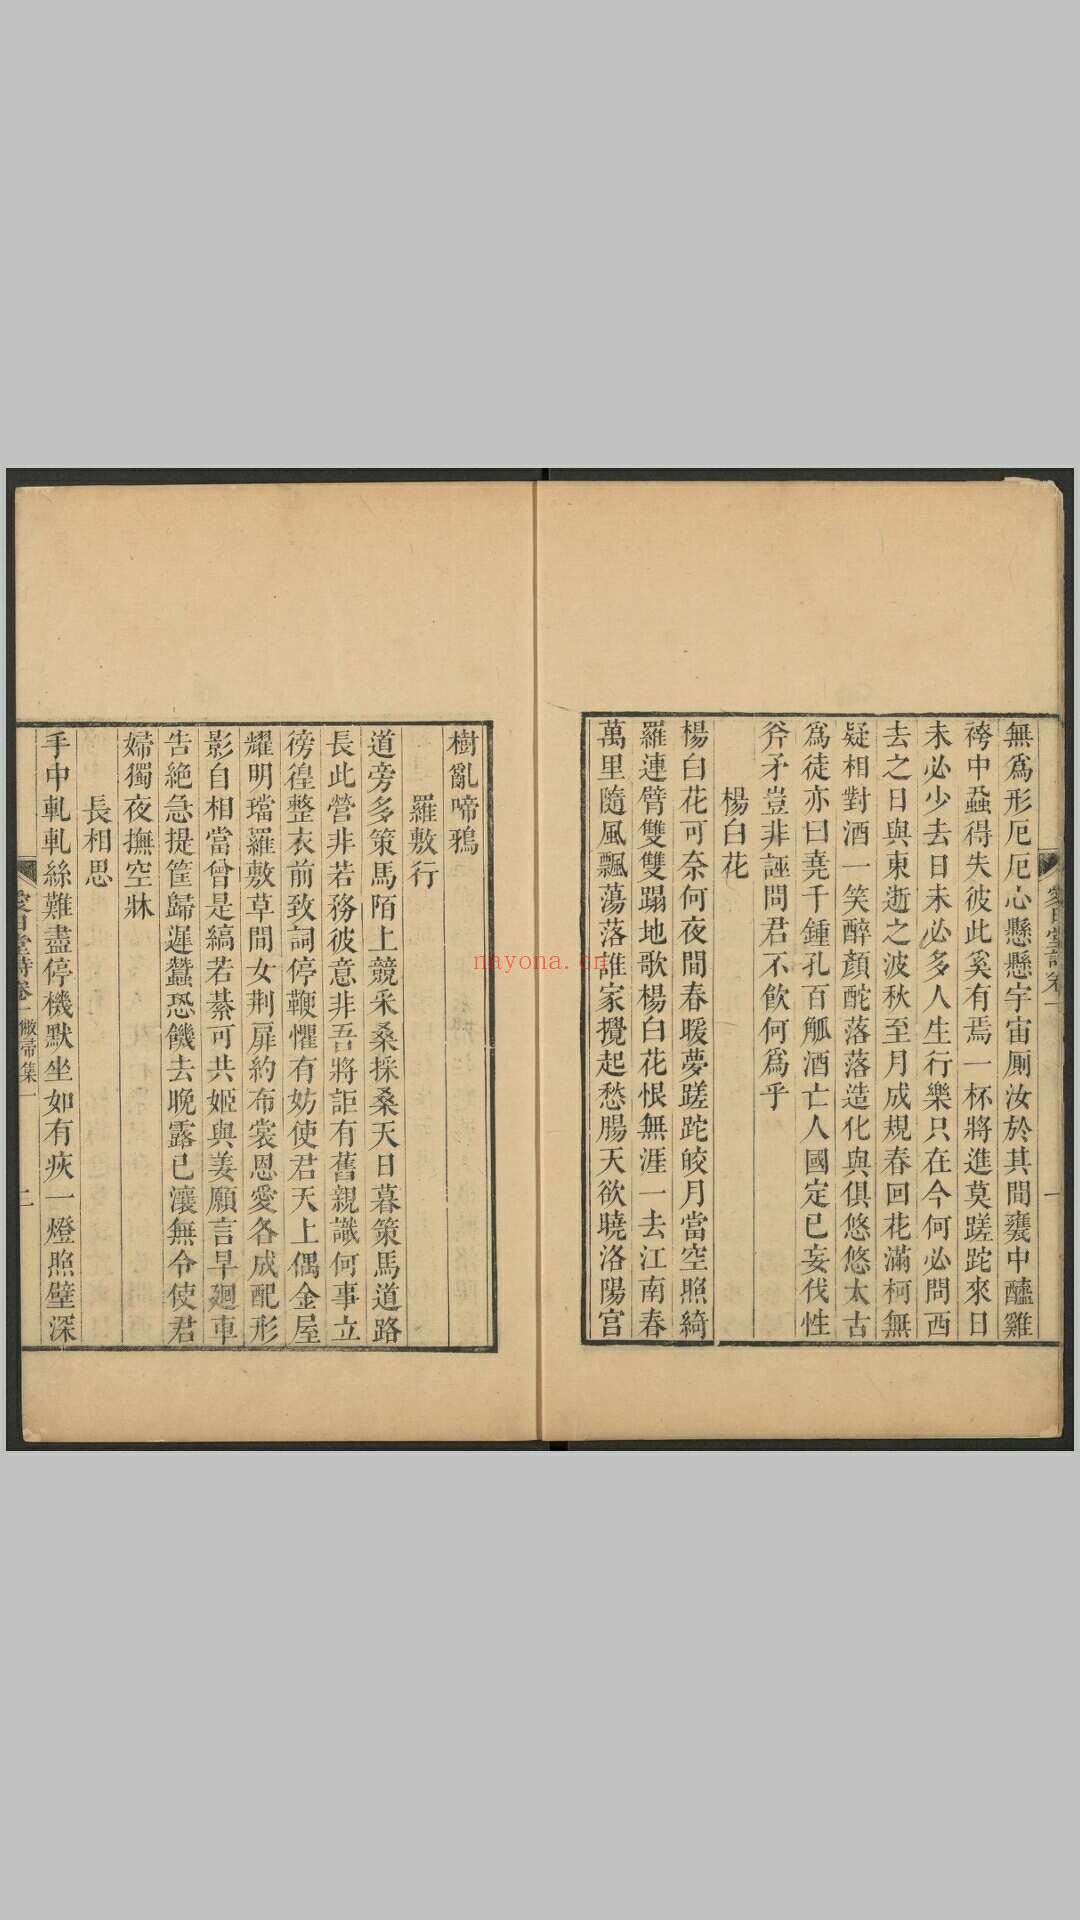 無爲形厄厄心懸懸宇宙厠汝於其間甕中醯雞
袴中蝨得失彼此奚有焉一杯將進莫蹉跎來日
未必少去日未必多人生行樂只在今何必問西
去之日與東逝之波秋至月成規春回花滿柯無
疑相對酒一笑醉顏酡落落造化與俱悠悠太古
爲徒亦曰堯千鍾孔百觚酒亡人國定已妄伐性
斧矛豈非誣問君不飮何爲乎
楊白花
楊白花可奈何夜間春暖夢蹉跎皎月當空照綺
羅連臂雙雙蹋地歌楊白花恨無涯一去江南春
萬里隨風飄蕩落誰家攪起愁腸天欲曉洛陽宮
愛日堂詩卷一
一
樹亂啼鴉
羅敷行
道旁多策馬陌上競采桑採桑天日暮策馬道路
長此營非若務彼意非吾將詎有舊親識何事立
徬徨整衣前致詞停鞭懼有妨使君天上偶金屋
耀明璫羅敷草間女荆扉約布裳恩愛各成配形
影自相當曾是縞若綦可共姬與姜願言早廻車
告絶急提筐歸遲蠶恐饑去晚露已瀼無令使君
婦獨夜撫空牀
長相思
手中軋軋絲難盡停機默坐如有疢一燈照壁深
愛日堂詩卷一 敝帚集一
二
nayona.cn